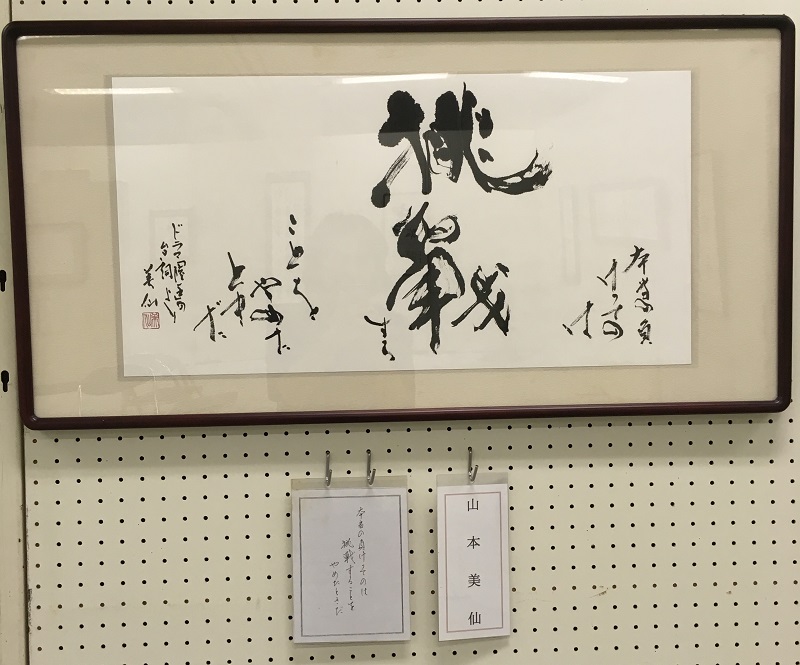 本当の負
けっての
は
挑戦
する
ことを
やめた
とき
だ
ドラマ陸王の
台詞より
美仙
本当の負けってのは
挑戦することを
やめたときだ
山本美仙